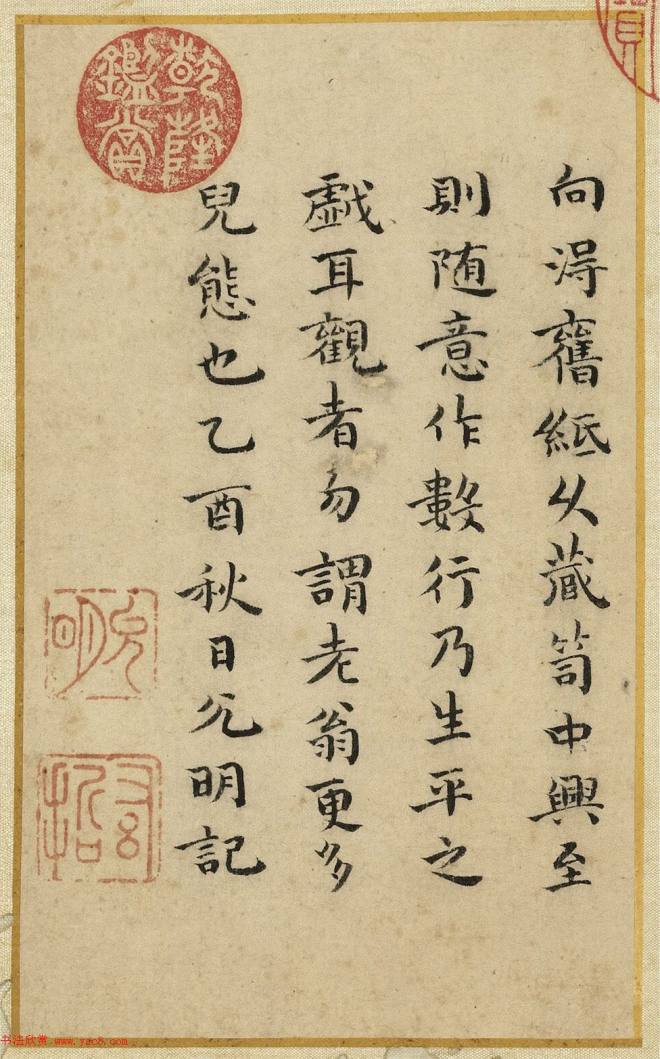 向淂舊紙乆藏笥中興至
則随意作數行乃生平之
戯耳觀者勿謂老翁更多
兒態也乙酉秋日允明記
乾隆鑑賞
允明
书法欣赏 www.yac8.com